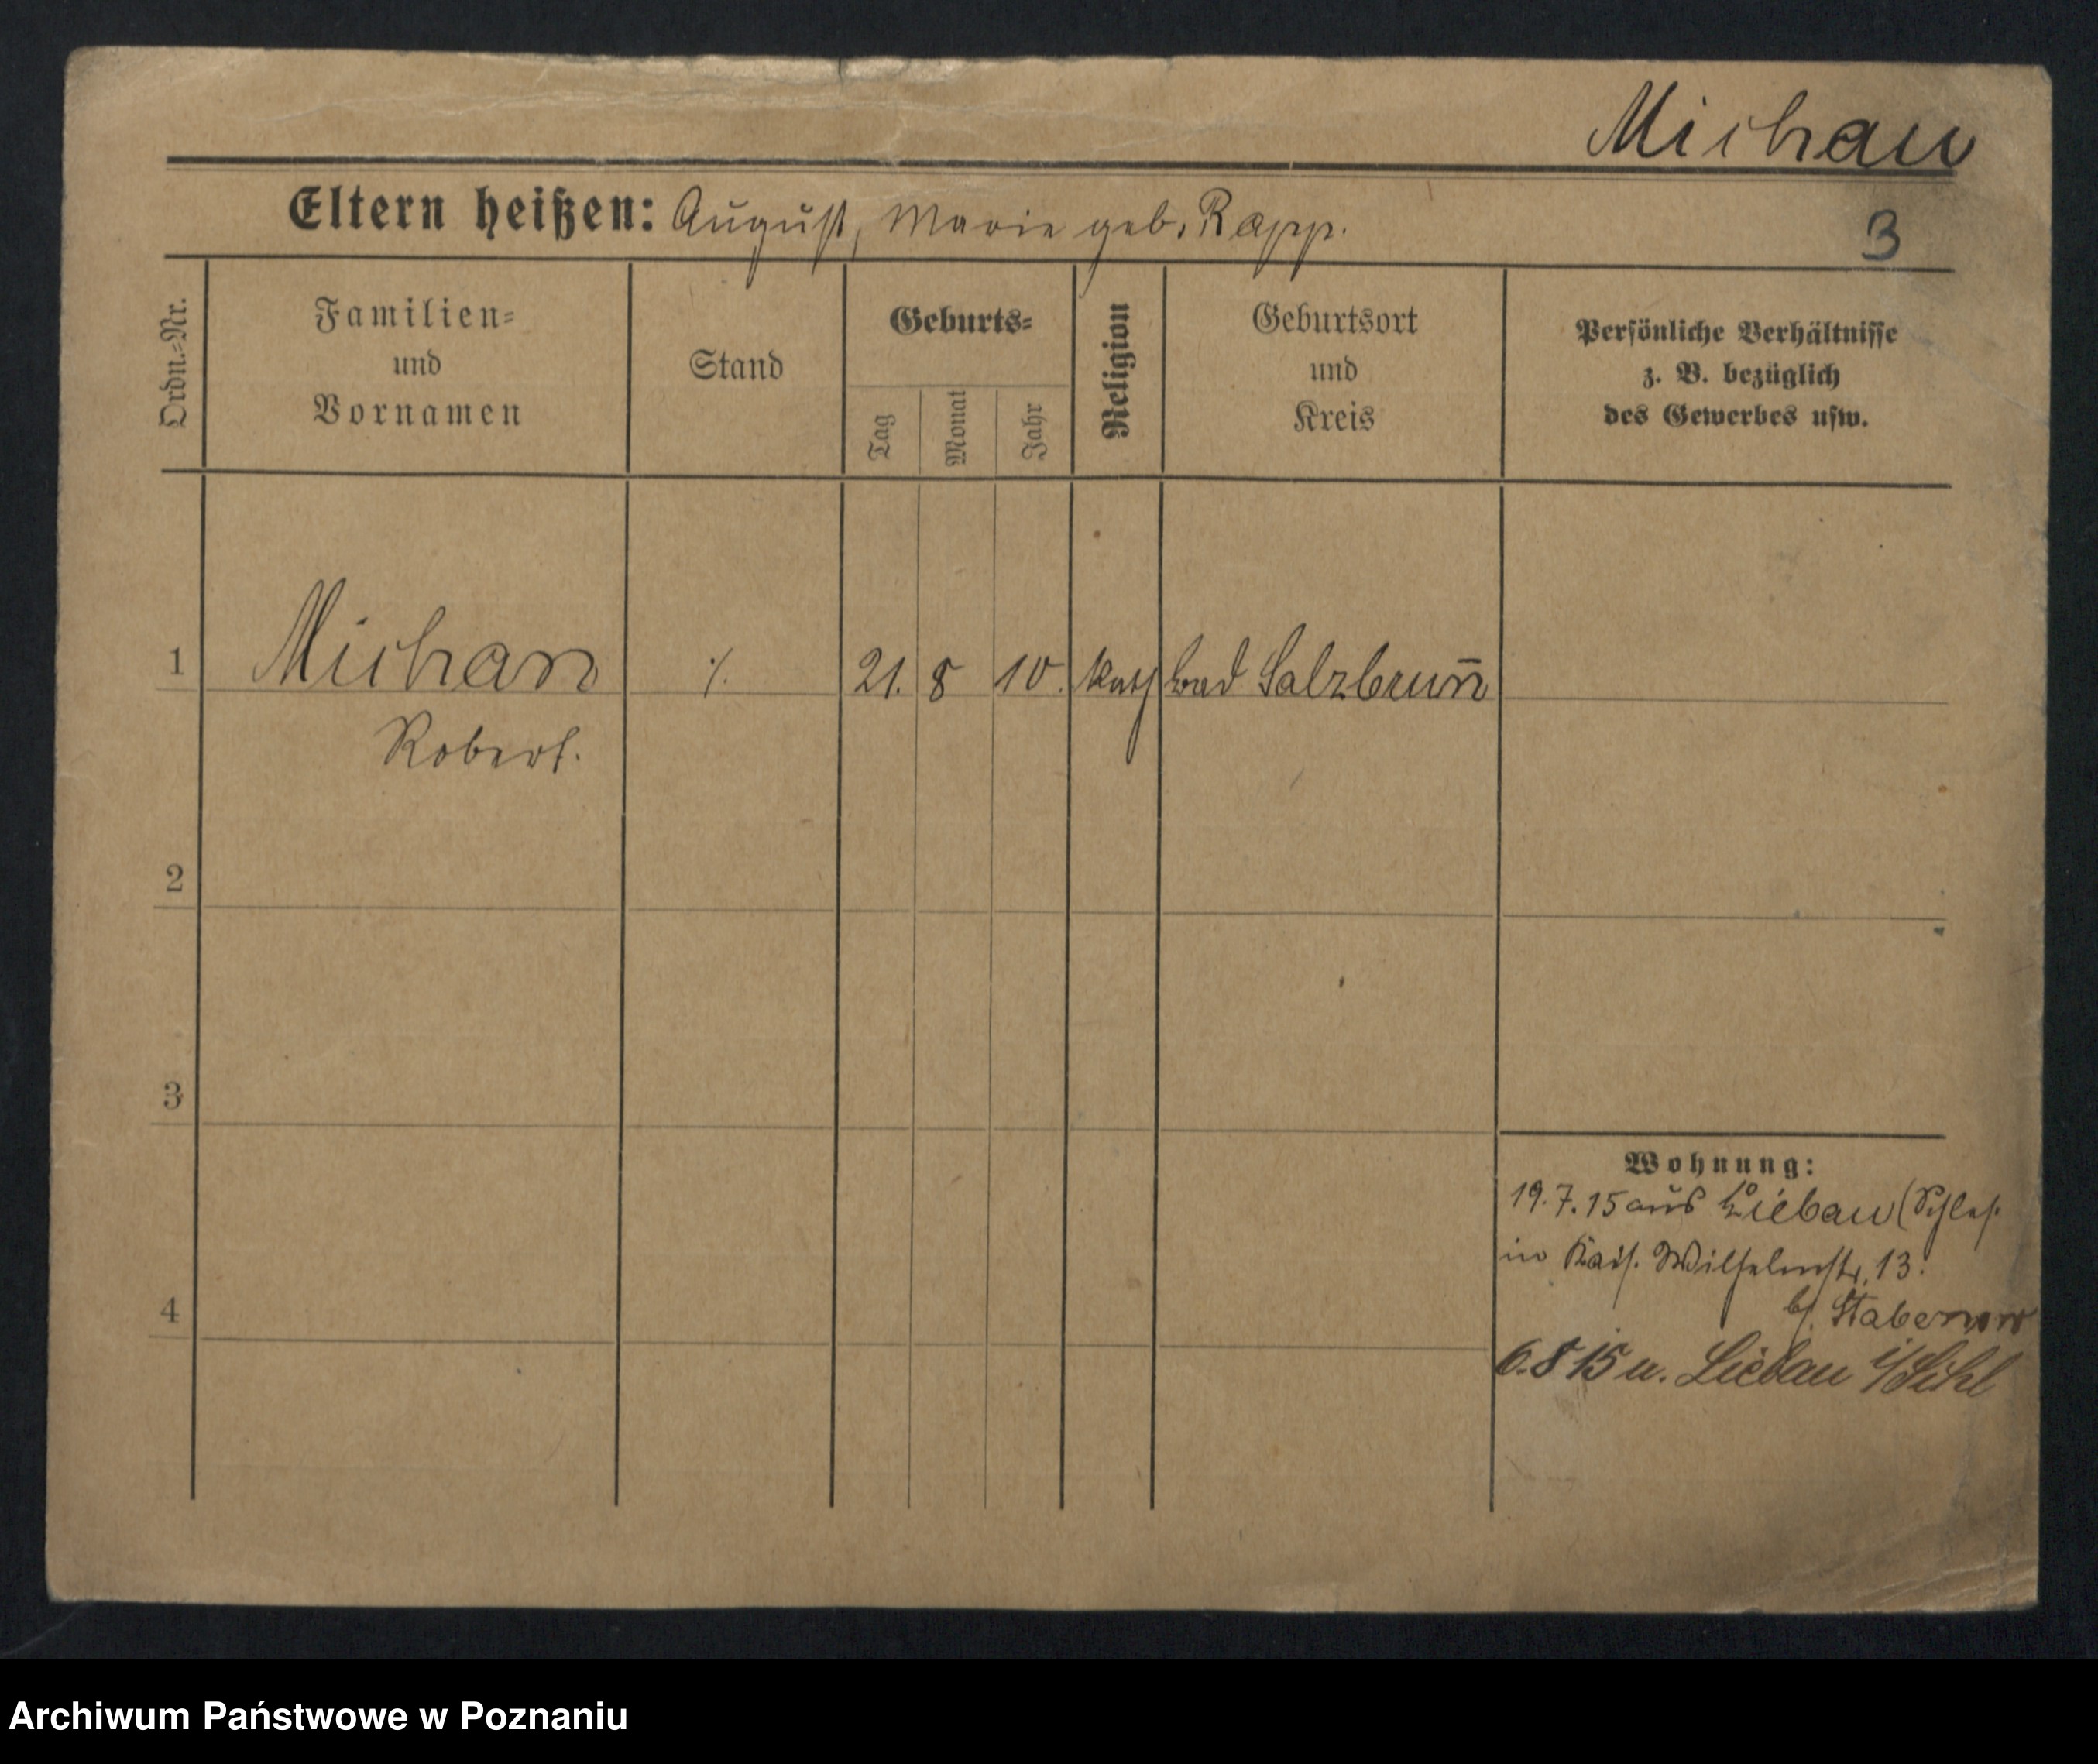 Michau
Eltern heißen: August, Marie geb. Rapp.
3
Ordn.=Nr.
Familien=
und
Vornamen
Stand
Geburts=
Tag
Monat
Jahr
Religion
Geburtsort
und
Kreis
Persönliche Verhältnisse
z. B. bezüglich
des Gewerbes usw.
1 Michau ·/. 21. 8 10. kath bad Salzbrun̄
Robert.
2
3
4
Wohnung:
19.7.15 aus Liebau (Schles.
in Kais. Wilhelmstr. 13.
b/
6.8 15 n. Liebau i/Schl
Archiwum Państwowe w Poznaniu